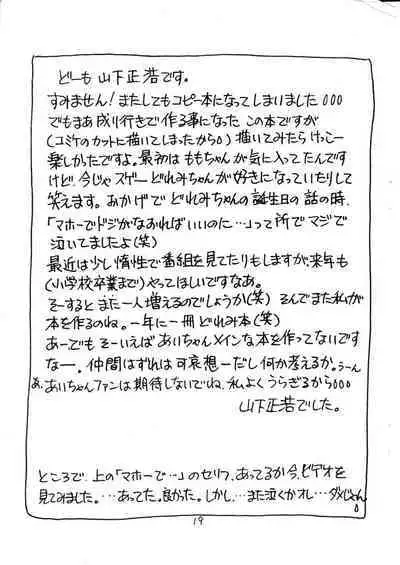 どーも 山下正浩です。
すみません!またしてもコピー本になってしまいました000
でもまあ成り行きで作る事になった この本ですが
(コミケのカットに描いてしまったから0) 描いてみたら けっこー
楽しかったですよ。最初は ももちゃんが気に入ってたんです
けど、今じゃ スゲー どれみちゃんが好きになっていたりして
笑えます。おかげで どれみちゃんの誕生日の 話の時、
「マホーでドジがなおればいいのに…」って所で マジで
泣いてましたよ(笑)
最近は少し惰性で番組を見てたりもしますが、来年も
(小学校卒業まで)やってほしいですなあ。
そーすると また一人増えるのでしょうか(笑) そんでまた私が
本を作るのね。一年に一冊 どれみ本(笑)
あーでも そーいえば あいちゃんメインな本を作ってないです
なー。仲間はずれは 可哀想ーだし 何か考えるか。うーん
あ、あいちゃんファンは期待しないでね、私よく うらぎるから000
山下正浩でした。
ところで、上の「マホーで…」のセリフ、あってるか今、ビデオを
見てみました。…あってた。良かった。しかし…また泣くかオレ…ダメじゃん0
19